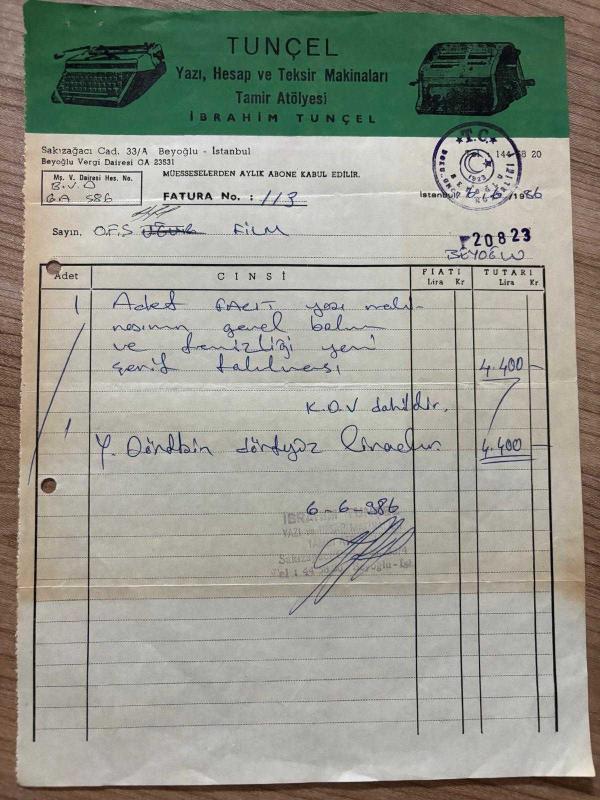 TUNÇEL
Yazı, Hesap ve Teksir Makinaları
Tamir Atölyesi
İBRAHİM TUNÇEL
Sakızağacı Cad. 33/A Beyoğlu - İstanbul
Beyoğlu Vergi Dairesi GA 23531
T.C.
144 58 20
Mş. V. Dairesi Hes. No.
B.V.D
GA 586
MÜESSESELERDEN AYLIK ABONE KABUL EDİLİR.
1923
FATURA No. : 113
İstanbul 6/6/1986
Sayın, O.F.S UĞUR FİLM
20823
BEYOĞLU
Adet CİNSİ FİATI TUTARI
Lira Kr Lira Kr
1 Adet FACIT yazı maki-
nasının genel bakım
ve temizliği yeni
şerit takılması 4.400
K.D.V dahildir.
Y. Dörtbin dörtyüz liradır. 4.400
6-6-986